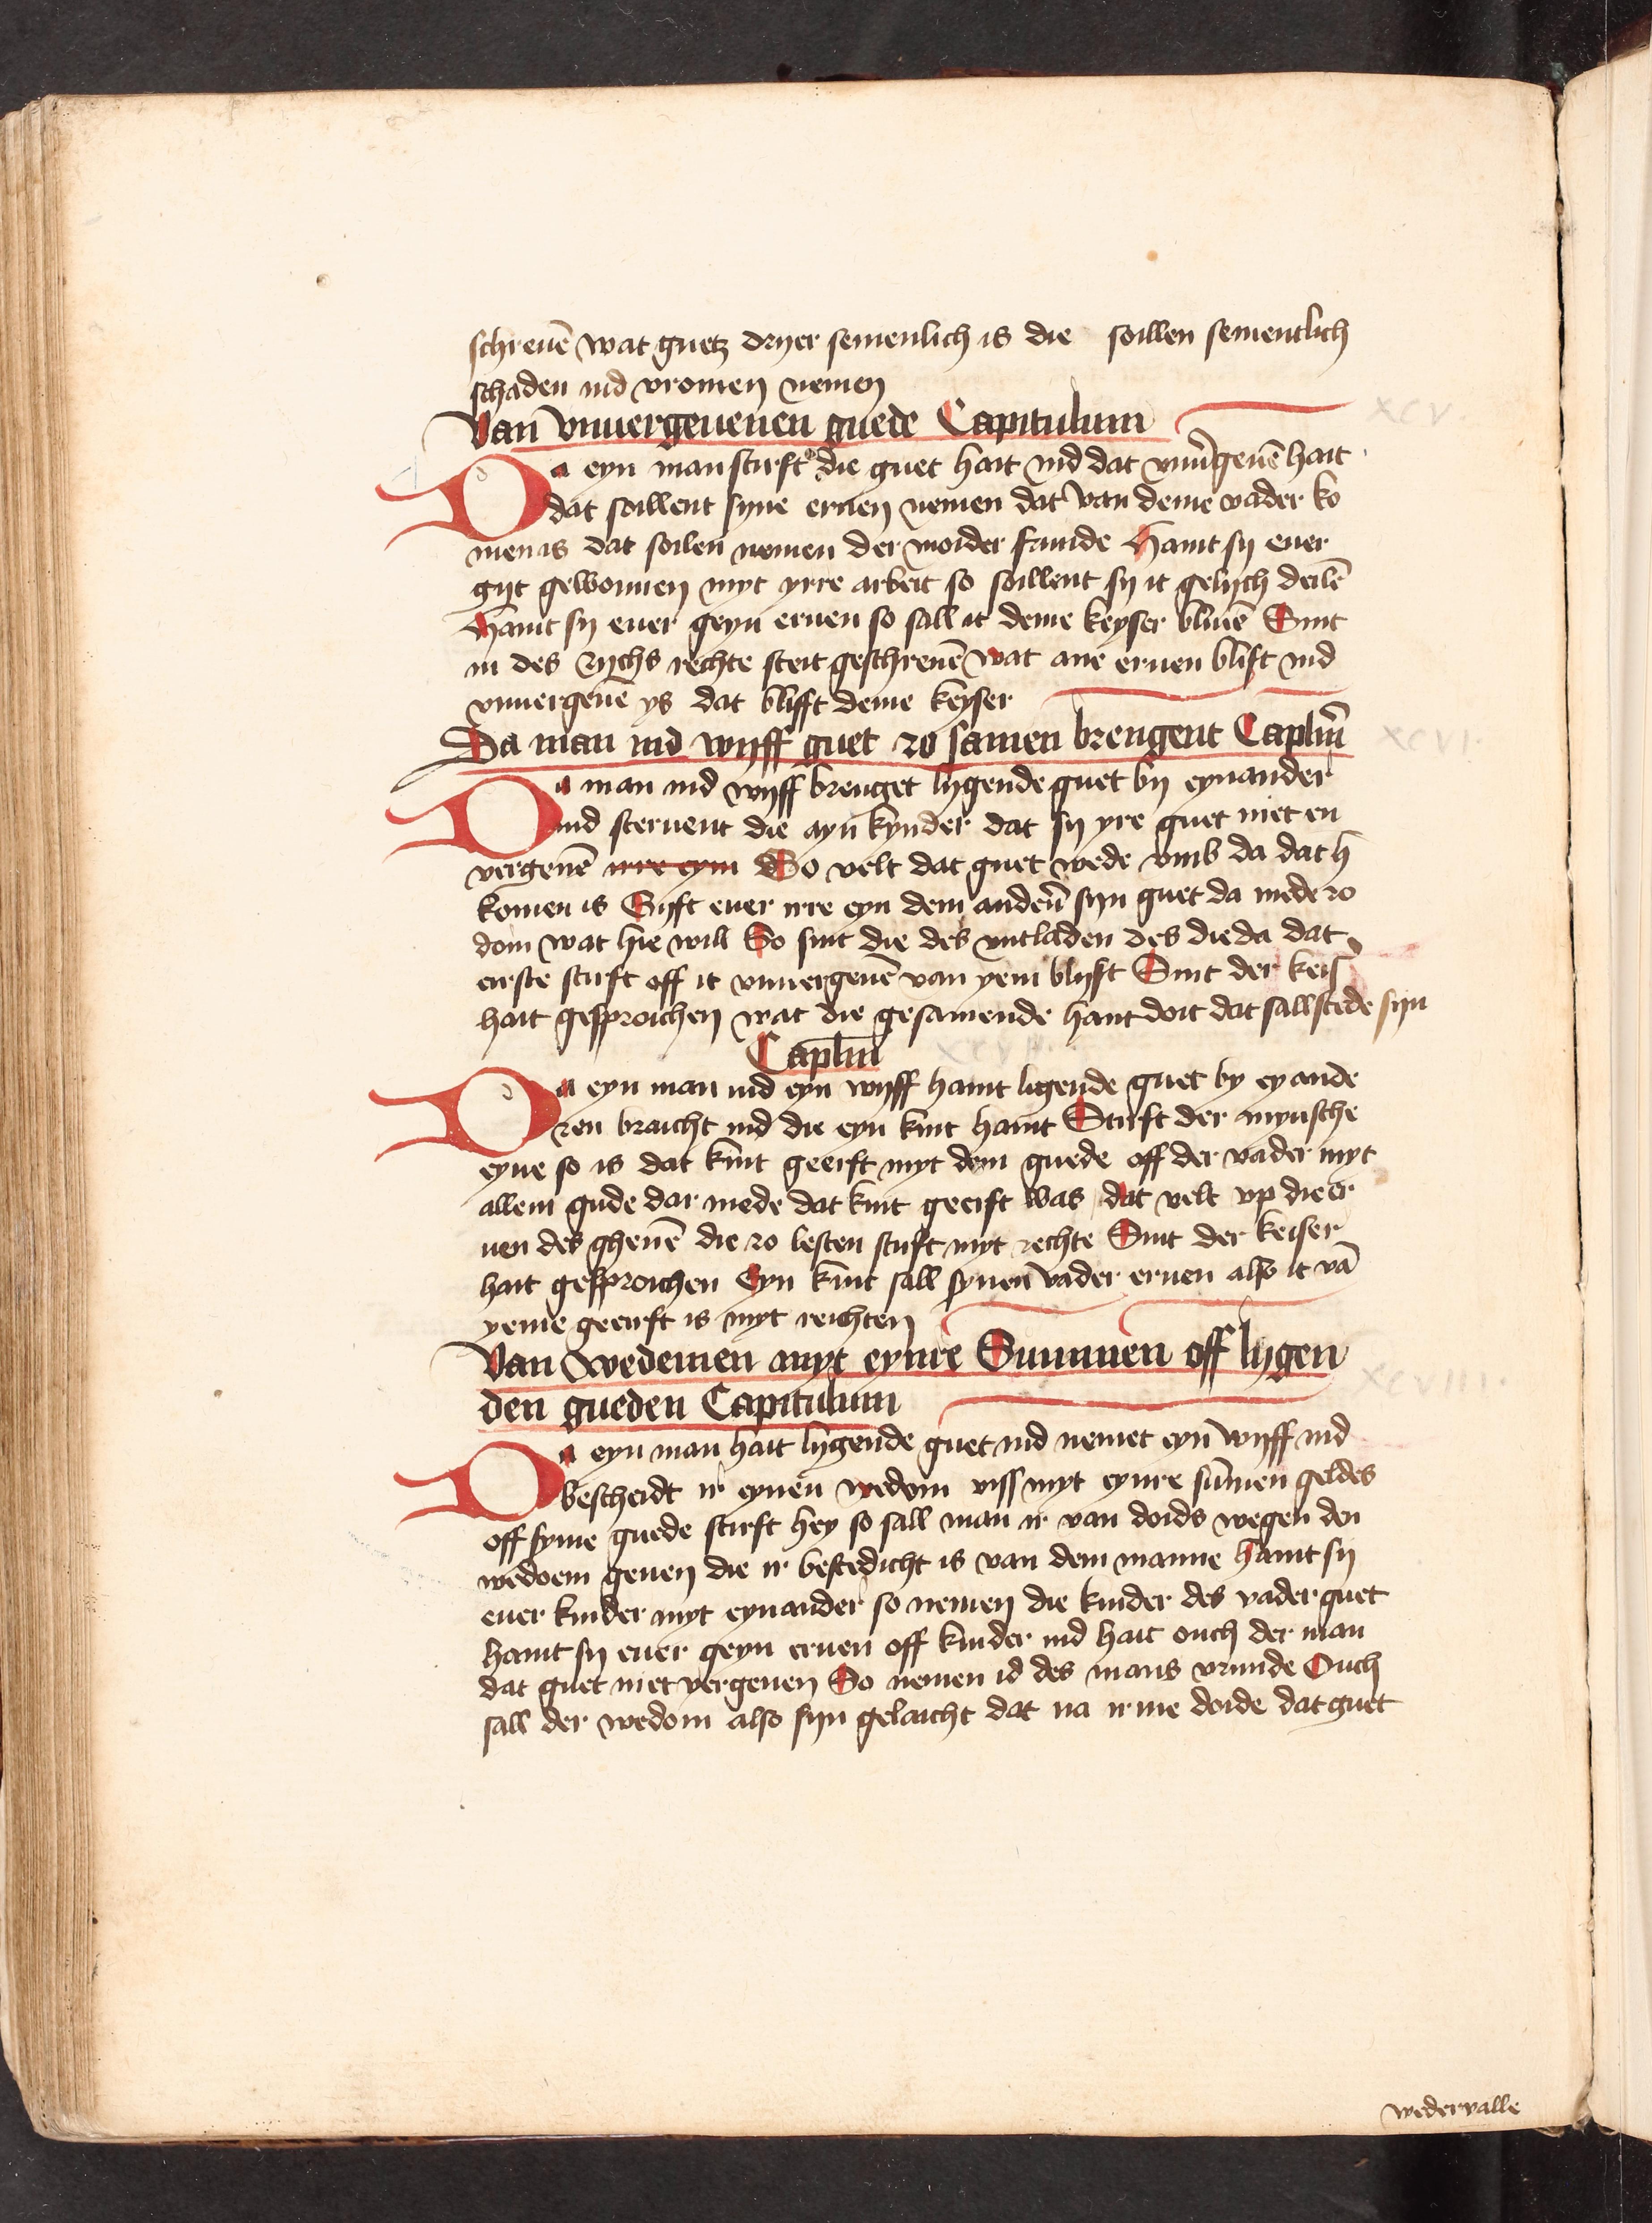 schreuē wat guetz dryer semenlich is die soillen sementlich
schaden ind vromen nemen
Van vnuergeuenen guede Capitulum
XCV.
Da eyn man stirft die guet hait ind dat vnu̕geuē hait
dat soillent syne eruen nemen dat van deme vader ko
men is dat soilen nemen der moider frunde Haint sy euer
gyt gewonnen myt yrre arbeit so soillent sy it gelych deilē
Haint sy euer geyn eruen so sall it deme keyser bliuē Sint
in des rychs rechte steit geschreuē wat ane eruen blift ind
vnuergeuē ys dat blifft deme keyser
Da man ind wyff guet zo samen brengent Capl̄m
XCVI.
Da man ind wyff brenget lygende guet by eynander
ind steruent die ayn kynder dat sy yre guet niet en
vergeuē irre eyn So velt dat guet wede vmb da dat h
komen is Gyft euer irre eyn dem anderē syn guet da mede zo
doin wat hie will So sint die des vntladen des die da dat
eirste stirft off it vnuergeuē van yem blyft Sint der keis
hait gesproichen wat die gesamende hant doit dat sall stede syn
Capl̄m
XCVII.
Da eyn man ind eyn wyff haint ligende guet by eyande
ren braicht ind die eyn kint haint Stirft der mynsche
eyne so is dat kint geerft myt dem guede off der vader myt
allem gude dar mede dat kint geerft was dat velt vp die er
uen des ghenē die zo lesten stirft myt rechte Sint der keiser
hait gesproichen Eyn kint sall synen vader eruen also it vā
yeme geerft is myt reichten
Van wedemen myt eynre Summen off lygen
den gueden Capitulum
XCVIII.
Da eyn man hait lygende guet ind nemet eyn wyff ind
bescheidt ir eynen wedom viss myt eynre sūmen geldes
off syme guede stirft hey so sall man ir van doids wegen den
wedoem geuen die ir bestedicht is van dem manne haint sy
euer kinder myt eynander so nemen die kinder des vader guet
haint sy euer geyn eruen off kinder ind hait ouch der man
dat guet niet vergeuen So nemen id des mans vrunde Ouch
sall der wedom also syn gelaicht dat na irme doide dat guet
wedervalle